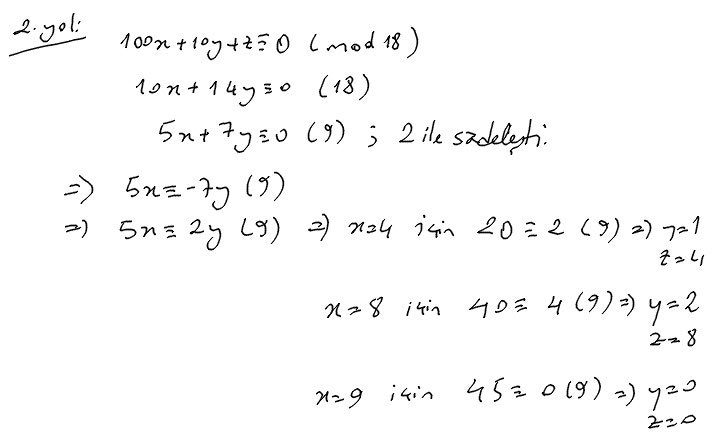 2. yol: 100x+10y+z≡0 (mod 18)
10x+14y≡0 (18)
5x+7y≡0 (9) ; 2 ile sadeleşti.
=> 5x≡-7y (9)
=> 5x≡2y (9) => x=4 için 20≡2 (9) => y=1
z=4
x=8 için 40≡4 (9) => y=2
z=8
x=9 için 45≡0 (9) => y=0
z=0